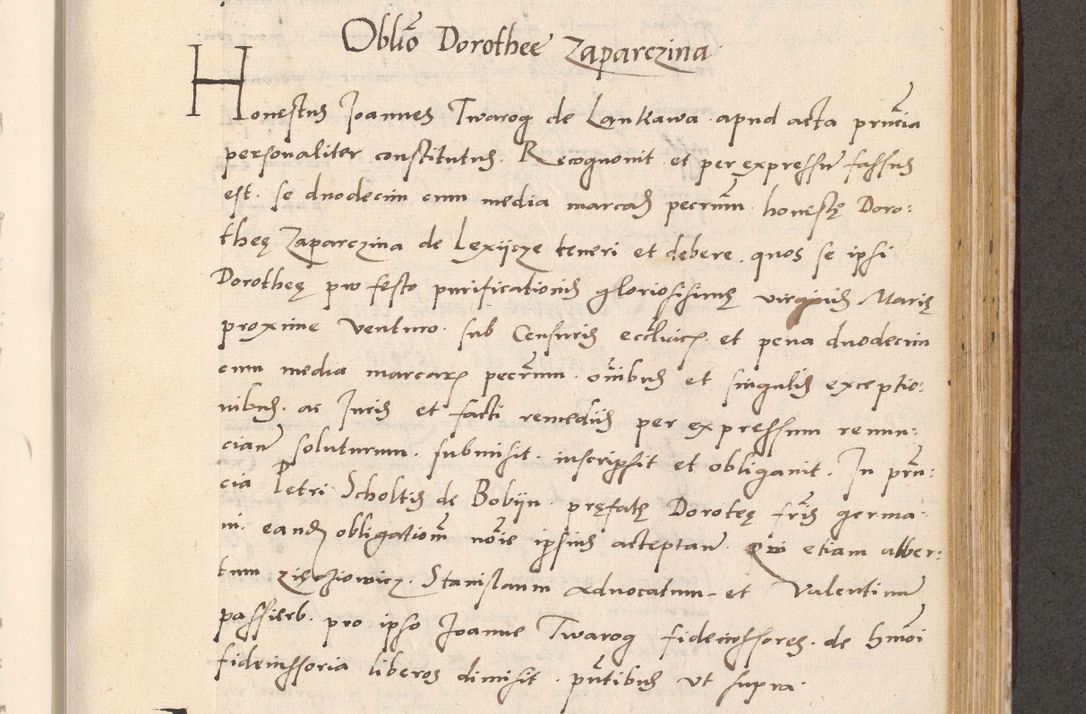 Oblio Dorothee Zaparczina
Honestus Joannes Twarog de Lankawa apud acta prncia
personaliter constitutus. Recognouit et per expressu fassus
est. se duodecim cum media marcas pecrum. honestę Doro:
theę Zaparczina de Lexijcze teneri et debere. quos se ipsi
Dorotheę pro festo purificationis gloriosissimę virginis Marię
proxime venturo. sub Censuris ecclicis. et pena duodecim
cum media marcarum pecrum. oibus et singulis exceptio:
nibus. ac Juris et facti remedijs per expressum renun:
cian soluturum. submisit. inscripsit et obligauit. In prn:
cia Petri Scholtis de Bobijn. prefatę Doroteę fris germa
ni. eand obligatiom noie ipsius acceptan. Qui etiam alber:
tum zięcziowicz. Stanislaum aduocatum et Valentinu
passierb. pro ipso Joanne Twarog fideiussores. de hmoi
fideiussoria liberos dimisit. pntibus vt supra.